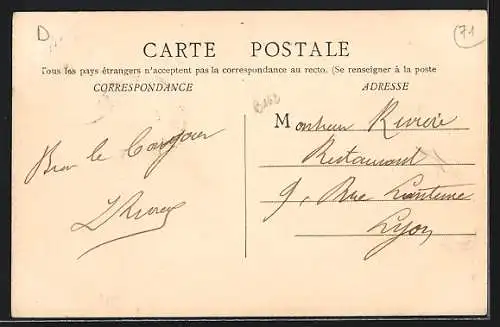 D
71
CARTE POSTALE
Tous les pays étrangers n'acceptent pas la correspondance au recto. (Se renseigner à la poste
CORRESPONDANCE
ADRESSE
Monsieur Rivière
Restaurant
9, Rue Lanterne
Lyon
Bien le Bonjour